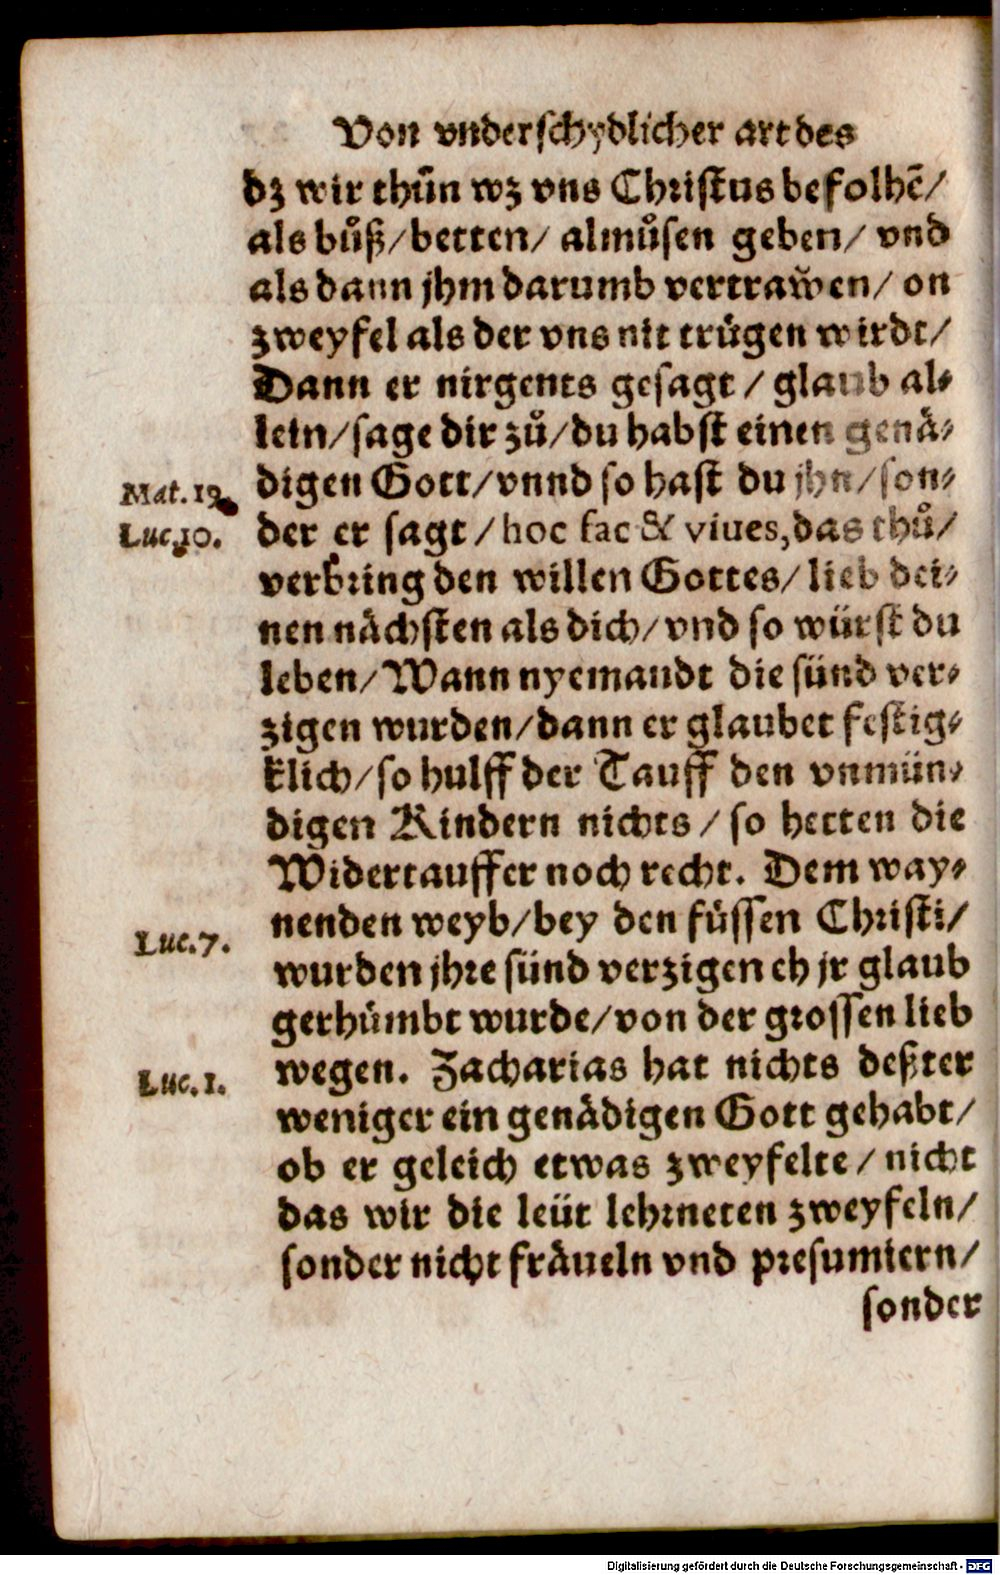 Von vnderschydlicher art des
dz wir thůn wz vns Christus befolhē/
als bůß/betten/ almůsen geben/ vnd
als dann jhm darumb vertrawen/ on
zweyfel als der vns nit trügen wirdt/
Dann er nirgents gesagt / glaub al⸗
lein/sage dir zů/du habst einen genä⸗
digen Gott/vnnd so hast du jhn/son⸗
Mat. 19.
der er sagt / hoc fac & viues, das thů/
Luc. 10.
verbring den willen Gottes/ lieb dei⸗
nen nächsten als dich/vnd so würst du
leben/Wann nyemandt die sünd ver⸗
zigen wurden/dann er glaubet festig⸗
klich/so hulff der Tauff den vnmün⸗
digen Kindern nichts / so hetten die
Widertauffer noch recht. Dem way⸗
nenden weyb/bey den füssen Christi/
Luc. 7.
wurden jhre sünd verzigen eh jr glaub
gerhümbt wurde/von der grossen lieb
wegen. Zacharias hat nichts deßter
Luc. 1.
weniger ein genädigen Gott gehabt/
ob er geleich etwas zweyfelte / nicht
das wir die leüt lehrneten zweyfeln/
sonder nicht fräueln vnd presumiern/
sonder
Digitalisierung gefördert durch die Deutsche Forschungsgemeinschaft - DFG